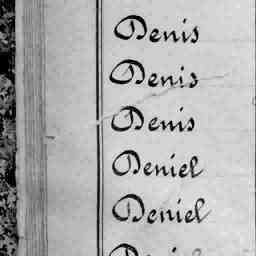 Denis
Denis
Denis
Deniel
Deniel